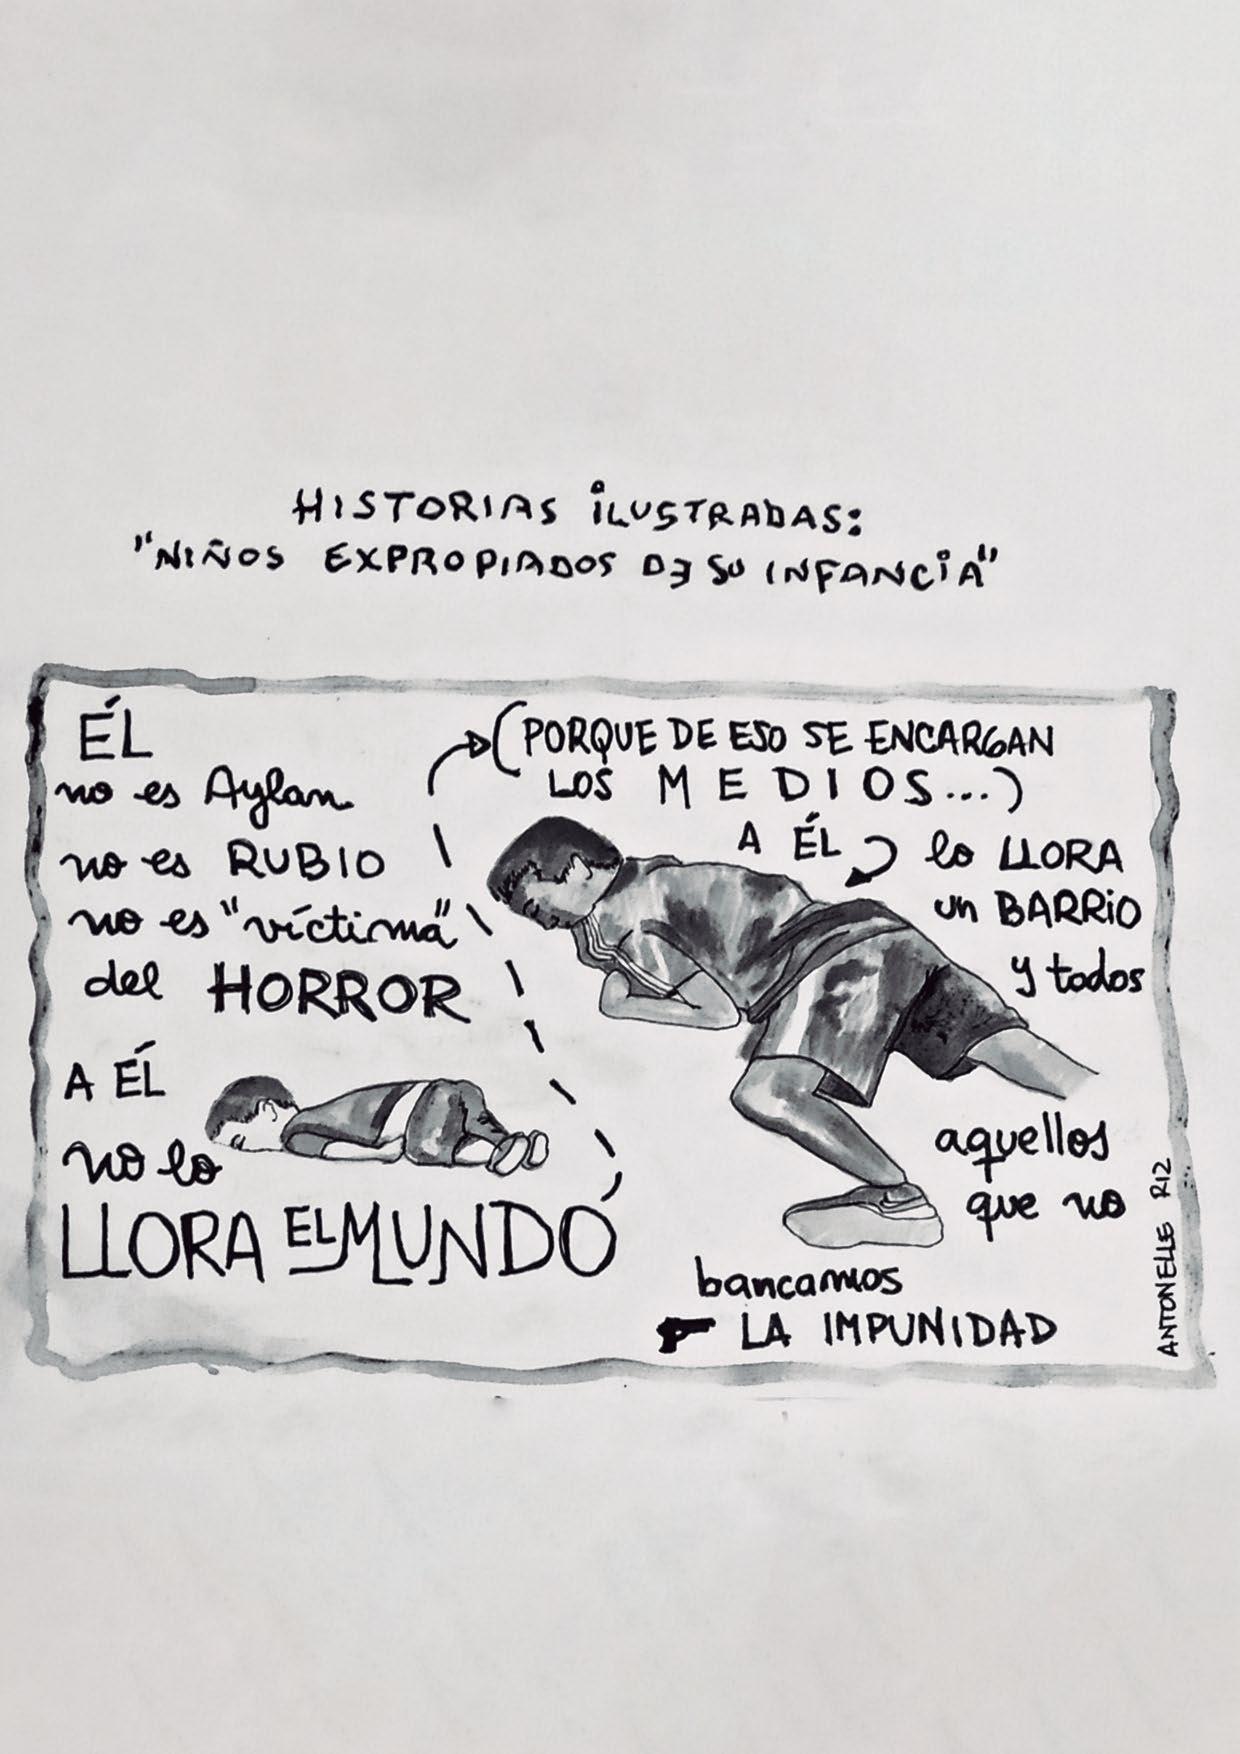 HISTORIAS ILUSTRADAS:
"NIÑOS EXPROPIADOS DE SU INFANCIA"
ÉL
no es Aylan
no es RUBIO
no es "víctima"
del HORROR
A ÉL
no lo
LLORA EL MUNDO
(PORQUE DE ESO SE ENCARGAN
LOS MEDIOS...)
A ÉL lo LLORA
un BARRIO
y todos
aquellos
que no
bancamos
LA IMPUNIDAD
ANTONELLE RIZ